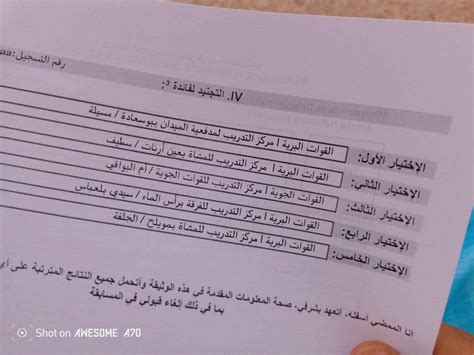 رقم التسجيل:aa
IV. التجنيد لفائدة ³:
الإختيار الأول: القوات البرية / مركز التدريب لمدفعية الميدان ببوسعادة / مسيلة
الإختيار الثاني: القوات البرية / مركز التدريب للمشاة بعين أرنات / سطيف
الإختيار الثالث: القوات الجوية / مركز التدريب للقوات الجوية / أم البواقي
الإختيار الرابع: القوات البرية / مركز التدريب للفرقة براس الماء / سيدي بلعباس
الإختيار الخامس: القوات البرية / مركز التدريب للمشاة بمويلح / الجلفة
أنا الممضي أسفله، أتعهد بشرفي، صحة المعلومات المقدمة في هذه الوثيقة وأتحمل جميع النتائج المترتبة على أي
بما في ذلك إلغاء قبولي في المسابقة
Shot on AWESOME A70